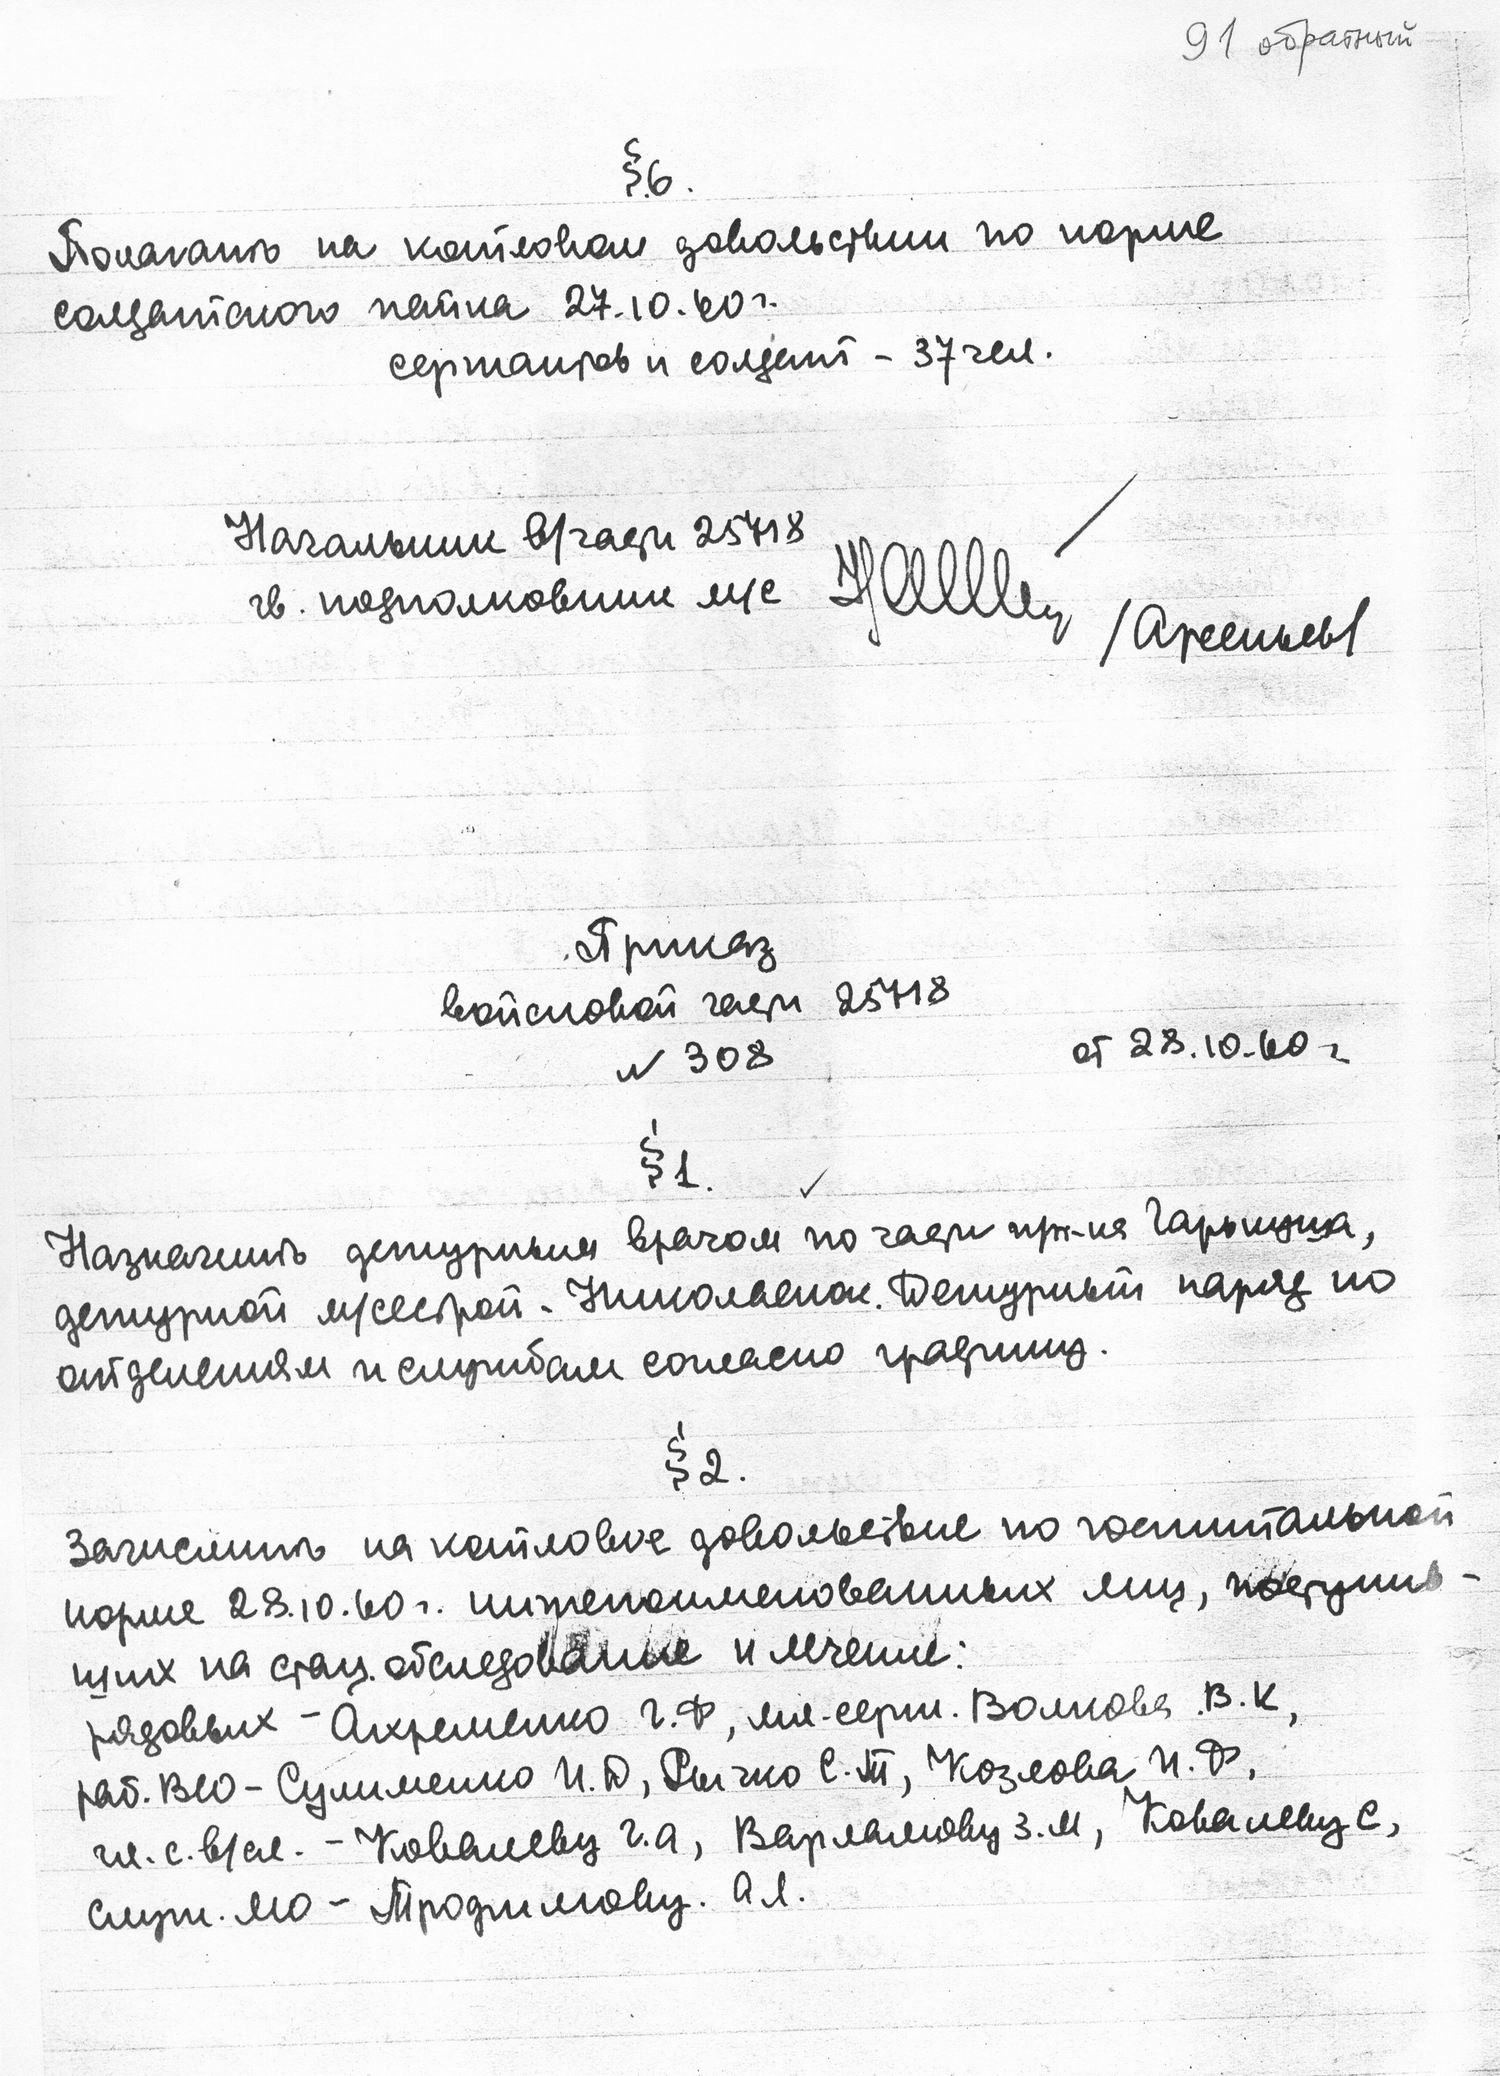 91 обратный
§ 6.
Полагать на котловом довольствии по норме
солдатского пайка 27.10.60 г.
сержантов и солдат - 37 чел.
Начальник в/части 25718
гв. подполковник м/с
/Арсеньев/
Приказ
войсковой части 25718
№ 308 от 28.10.60 г
§ 1.
Назначить дежурным врачом по части пр-ка Гарькуша,
дежурной м/сестрой - Николаенок. Дежурный наряд по
отделениям и службам согласно графику.
§ 2.
Зачислить на котловое довольствие по госпитальной
норме 28.10.60 г. нижепоименованных лиц, поступив-
ших на стац. обследование и лечение:
рядовых - Ахременко Г.Ф, мл. серж. Волкова В.К,
раб. ВСО - Сулименко И.Д, Рычко С.Т, Козлова И.Ф,
чл. с. в/сл. - Ковалеву Г.А, Варламову З.М, Ковалеву С,
служ. МО - Трофимову. А Л.